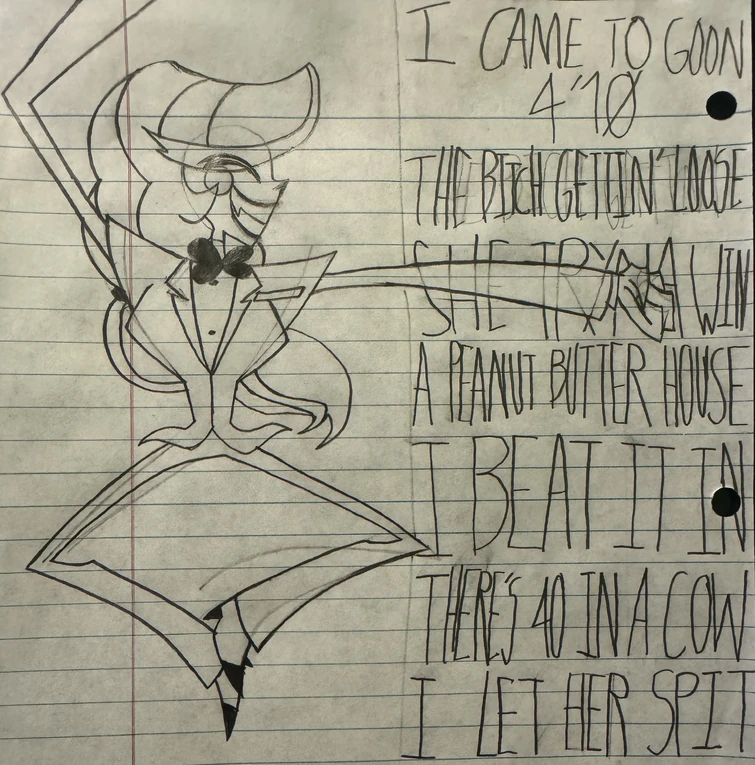 I CAME TO GOON
4'10
THE BITCH GETTIN' LOOSE
SHE TRYNA WIN
A PEANUT BUTTER HOUSE
I BEAT IT IN
THERE'S 40 IN A COW
I LET HER SPIT